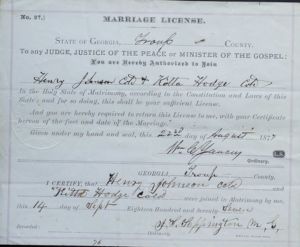 No. 87.)
MARRIAGE LICENSE.
STATE OF GEORGIA, Troup COUNTY.
To any JUDGE, JUSTICE OF THE PEACE or MINISTER OF THE GOSPEL:
You are Hereby Authorized to Join
Henry Johnson Cold & Hodge Cold
In the Holy State of Matrimony, according to the Constitution and Laws of this
State; and for so doing, this shall be your sufficient License.
And you are hereby required to return this License to me, with your Certificate
hereon of the fact and date of the Marriage.
Given under my hand and seal, this 22nd day of August 1877
Wm C Yancey
Ordinary.
GEORGIA, Troup County.
I CERTIFY, that Henry Johnson Cold
and Hodge Cold were joined in Matrimony on
this 14 day of Sept Eighteen Hundred and Seventy Seven
M. G.
Recorded
Ordinary.